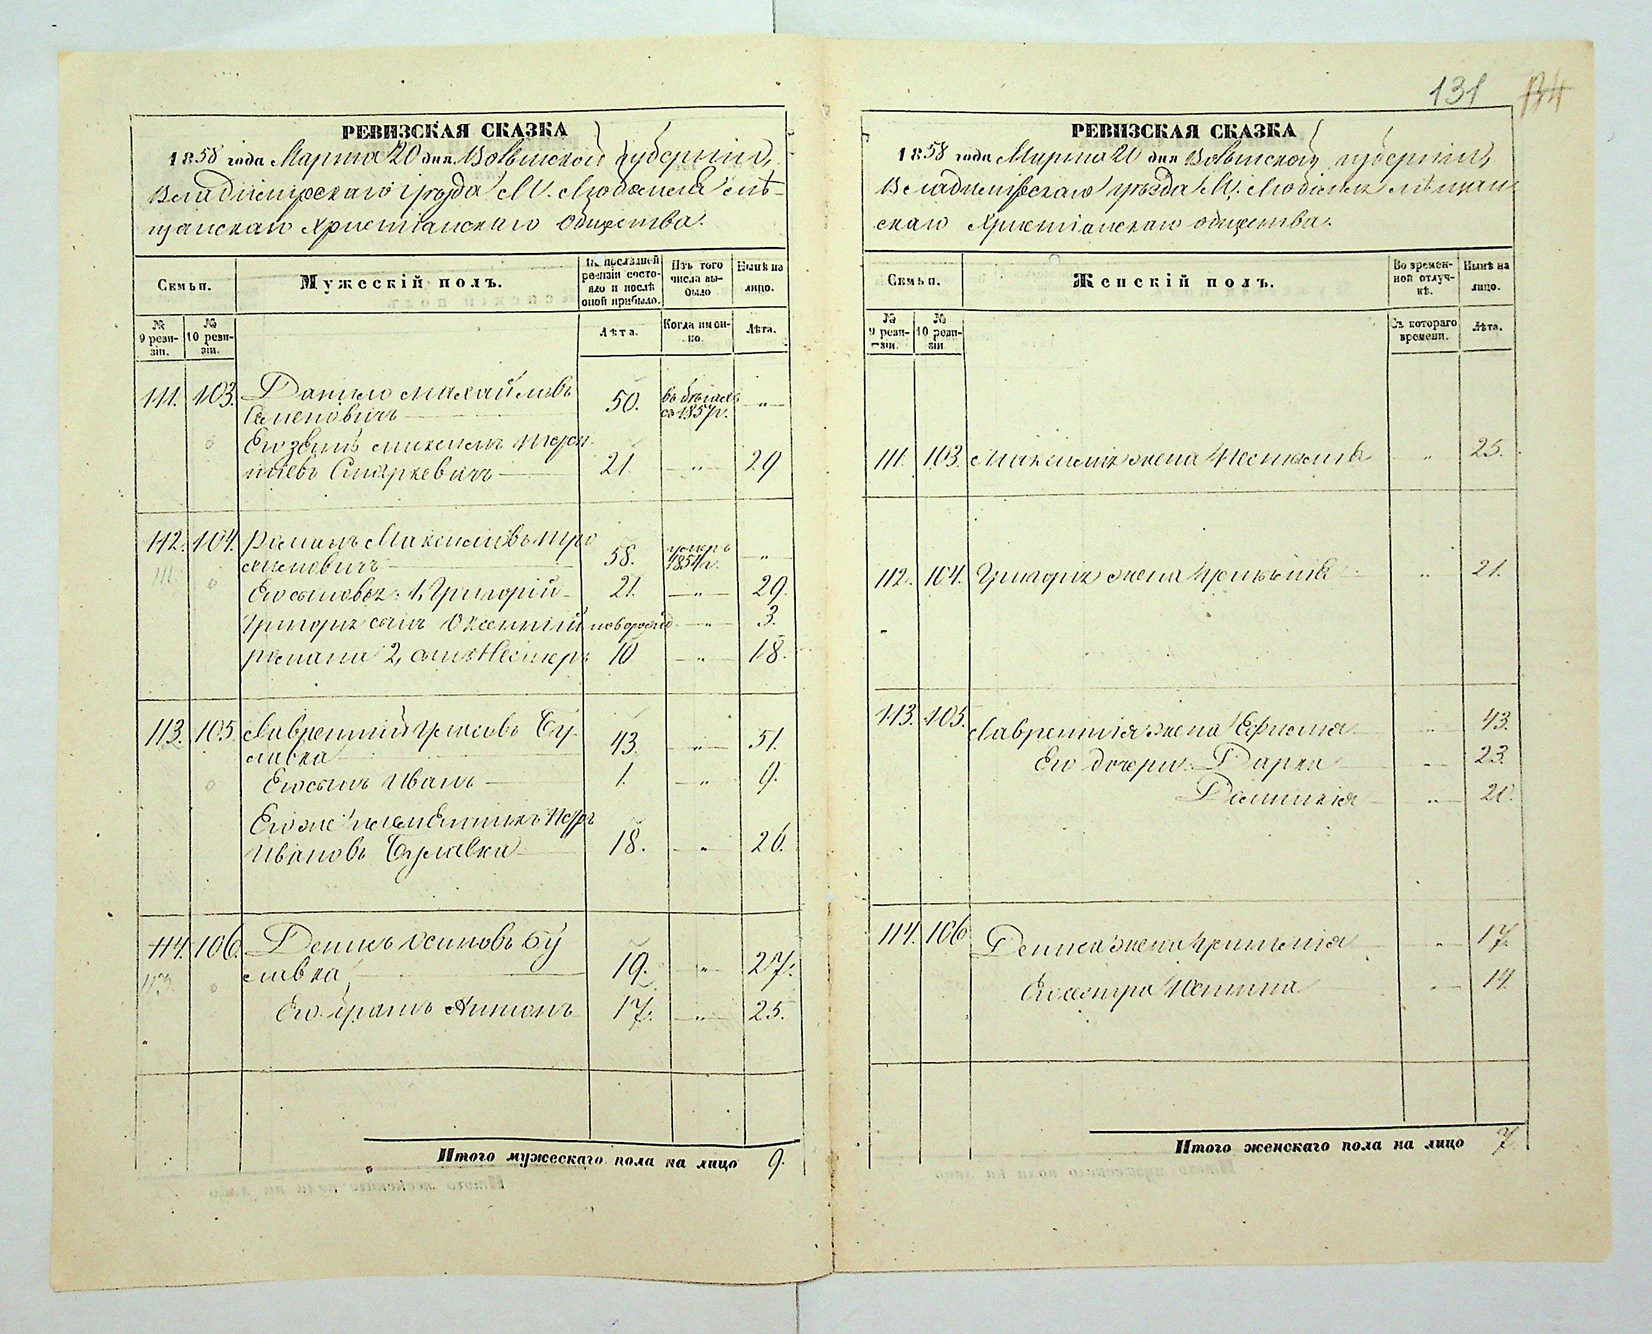 131 134
РЕВИЗСКАЯ СКАЗКА
1858 года Марта 20 дня Волынской губернии,
Владимирскаго уѣзда М. Любомля мѣ-
щанскаго Христіанскаго Общества.
Семьи.
Мужескій полъ.
По послѣдней ревизіи состояло и послѣ оной прибыло.
Изъ того числа выбыло
Нынѣ на лицо.
№ 9 ревизіи.
№ 10 ревизіи.
Лѣта.
Когда именно.
Лѣта.
111. 103. Данило Михайловъ
Семеновичъ 50. въ бѣгахъ съ 1857 г. „
Его зять
21. „ 29
112. 104. Романъ Максимовъ
58. умеръ 1854 г. „
111
Его сыновья: 1, Григорій 21. „ 29.
Григорія сынъ новорожд „ 3.
Романа 2, сынъ Несторъ 10 „ 18.
113. 105. Лаврентій Бу-
лавка 43 „ 51.
Его сынъ Иванъ 1. „ 9.
Его же племянникъ Петръ
Ивановъ Булавка 18. „ 26.
114. 106. Денисъ Осиповъ Бу
лавка 19. „ 27.
113
Его братъ Антонъ 17. „ 25.
Итого мужескаго пола на лицо 9.
РЕВИЗСКАЯ СКАЗКА
1858 года Марта 20 дня Волынской губерніи,
Владимірскаго уѣзда М. Любомля мѣщан
скаго Христіанскаго общества.
Семьи.
Женскій полъ.
Во временной отлучкѣ.
Нынѣ на лицо.
№ 9 ревизіи.
№ 10 ревизіи.
Съ котораго времени.
Лѣта.
111. 103. жена „ 25.
112. 104. Григорія жена „ 21.
113. 105. Лаврентія жена Ефимія „ 43.
Его дочери: Дарка „ 23.
Доминикія „ 20.
114. 106 Дениса жена „ 17.
Его сестра „ 14.
Итого женскаго пола на лицо 7.